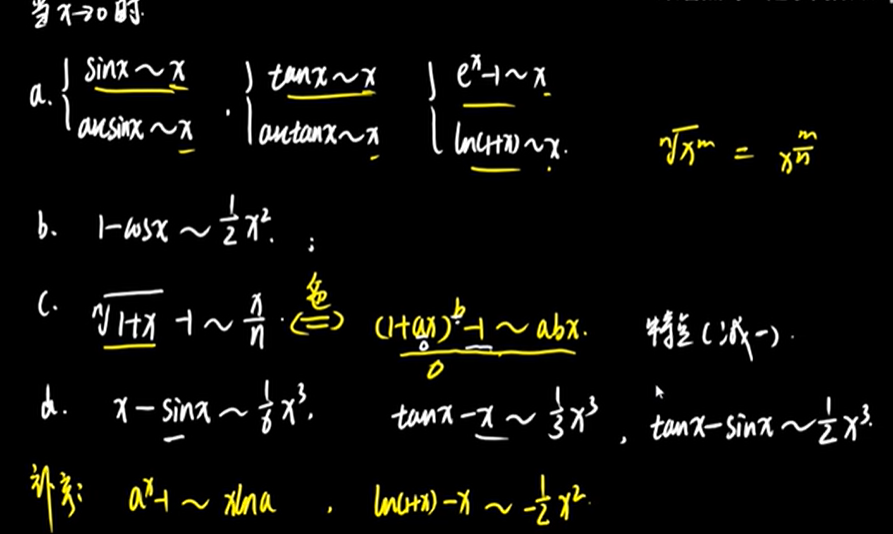 当x→0时.
a. { sinx ~ x . } tanx ~ x { e^x-1 ~ x
arcsinx ~ x arctanx ~ x ln(1+x) ~ x. ⁿ√x^m = x^(m/n)
b. 1-cosx ~ 1/2 x². ;
c. ⁿ√(1+x) -1 ~ x/n . (⇔) (1+ax)^b -1 ~ abx. 特点(减一).
0
0
d. x-sinx ~ 1/6 x³. tanx-x ~ 1/3 x³ , tanx-sinx ~ 1/2 x³.
补充: a^x-1 ~ xlna , ln(1+x)-x ~ -1/2 x².